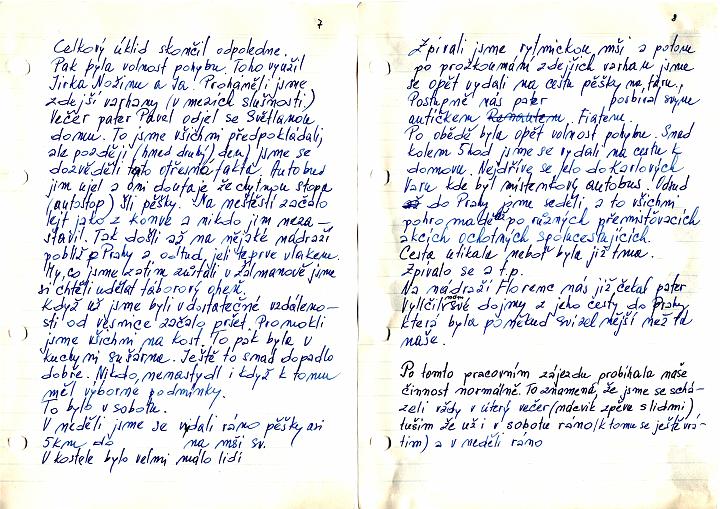 7
Celkový úklid skončil odpoledne.
Pak byla volnost pohybu. Toho využil
Jirka Nožinu a Ja. Proháněli jsme
zdejší varhany (v mezích slušnosti.)
Večer pater Pavel odjel se Světlanou
domu. To jsme všichni předpokládali,
ale později (hned druhý den) jsme se
dozvěděli tato otřesna fakta. Autobus
jim ujel a oni doufaje že chytnou stopa
(autostop) šli pěšky. Na neštěstí začalo
lejt jako z konve a nikdo jim neza-
stavil. Tak došli až na nějaké nádraží
poblíž Prahy a odtud jeli teprve vlakem.
My, co jsme zatim zůstali v Žalmanově jsme
si chtěli udělat táborový oheň.
Když už jsme byli v dostatečné vzdáleno-
sti od vesnice začalo pršet. Promokli
jsme všichni na kost. To pak byla v
kuchyni sušárna. Ještě to snad dopadlo
dobře. Nikdo, nenastydl i když k tomu
měl výborné podmínky.
To bylo v sobotu.
V neděli jsme se vydali ráno pěšky asi
5km do na mši sv.
V kostele bylo velmi málo lidí
8
Zpívali jsme rytmickou mši a potom
po prozkoumám zdejších varhan jsme
se opět vydali na cestu pěšky na faru.,
Postupně nás pater posbíral svym
autíčkem Fiatem.
Po obědě byla opět volnost pohybu. Snad
kolem 5hod jsme se vydali na cestu k
domovu. Nejdříve se jelo do Karlových
Varu kde byl místenkový autobus. Odtud
do Prahy jsme seděli, a to všichni
pohromadě po ruzných přemisťovacích
akcích ochotných spolucestujících.
Cesta utíkala neboť byla již tma.
Zpívalo se a t.p.
Na nadraží Florenc nás již čekal pater
Vylíčil nám své dojmy z jeho cesty do Prahy
která byla poněkud svízelnější než ta
naše.
Po tomto pracovním zájezdu probíhala naše
činnost normálně. To znamená, že jsme se schá-
zeli vždy v úterý večer (nácvik zpěvu s lidmi)
tuším že už i v sobotu ráno (k tomu se ještě vrá-
tim) a v neděli ráno